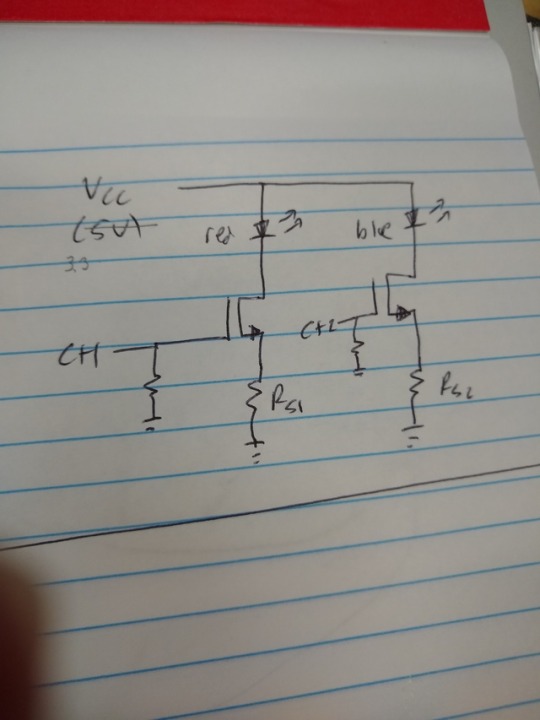 VCC
(5V)
red
blue
3.3
CH1
CH2
RS1
RS2